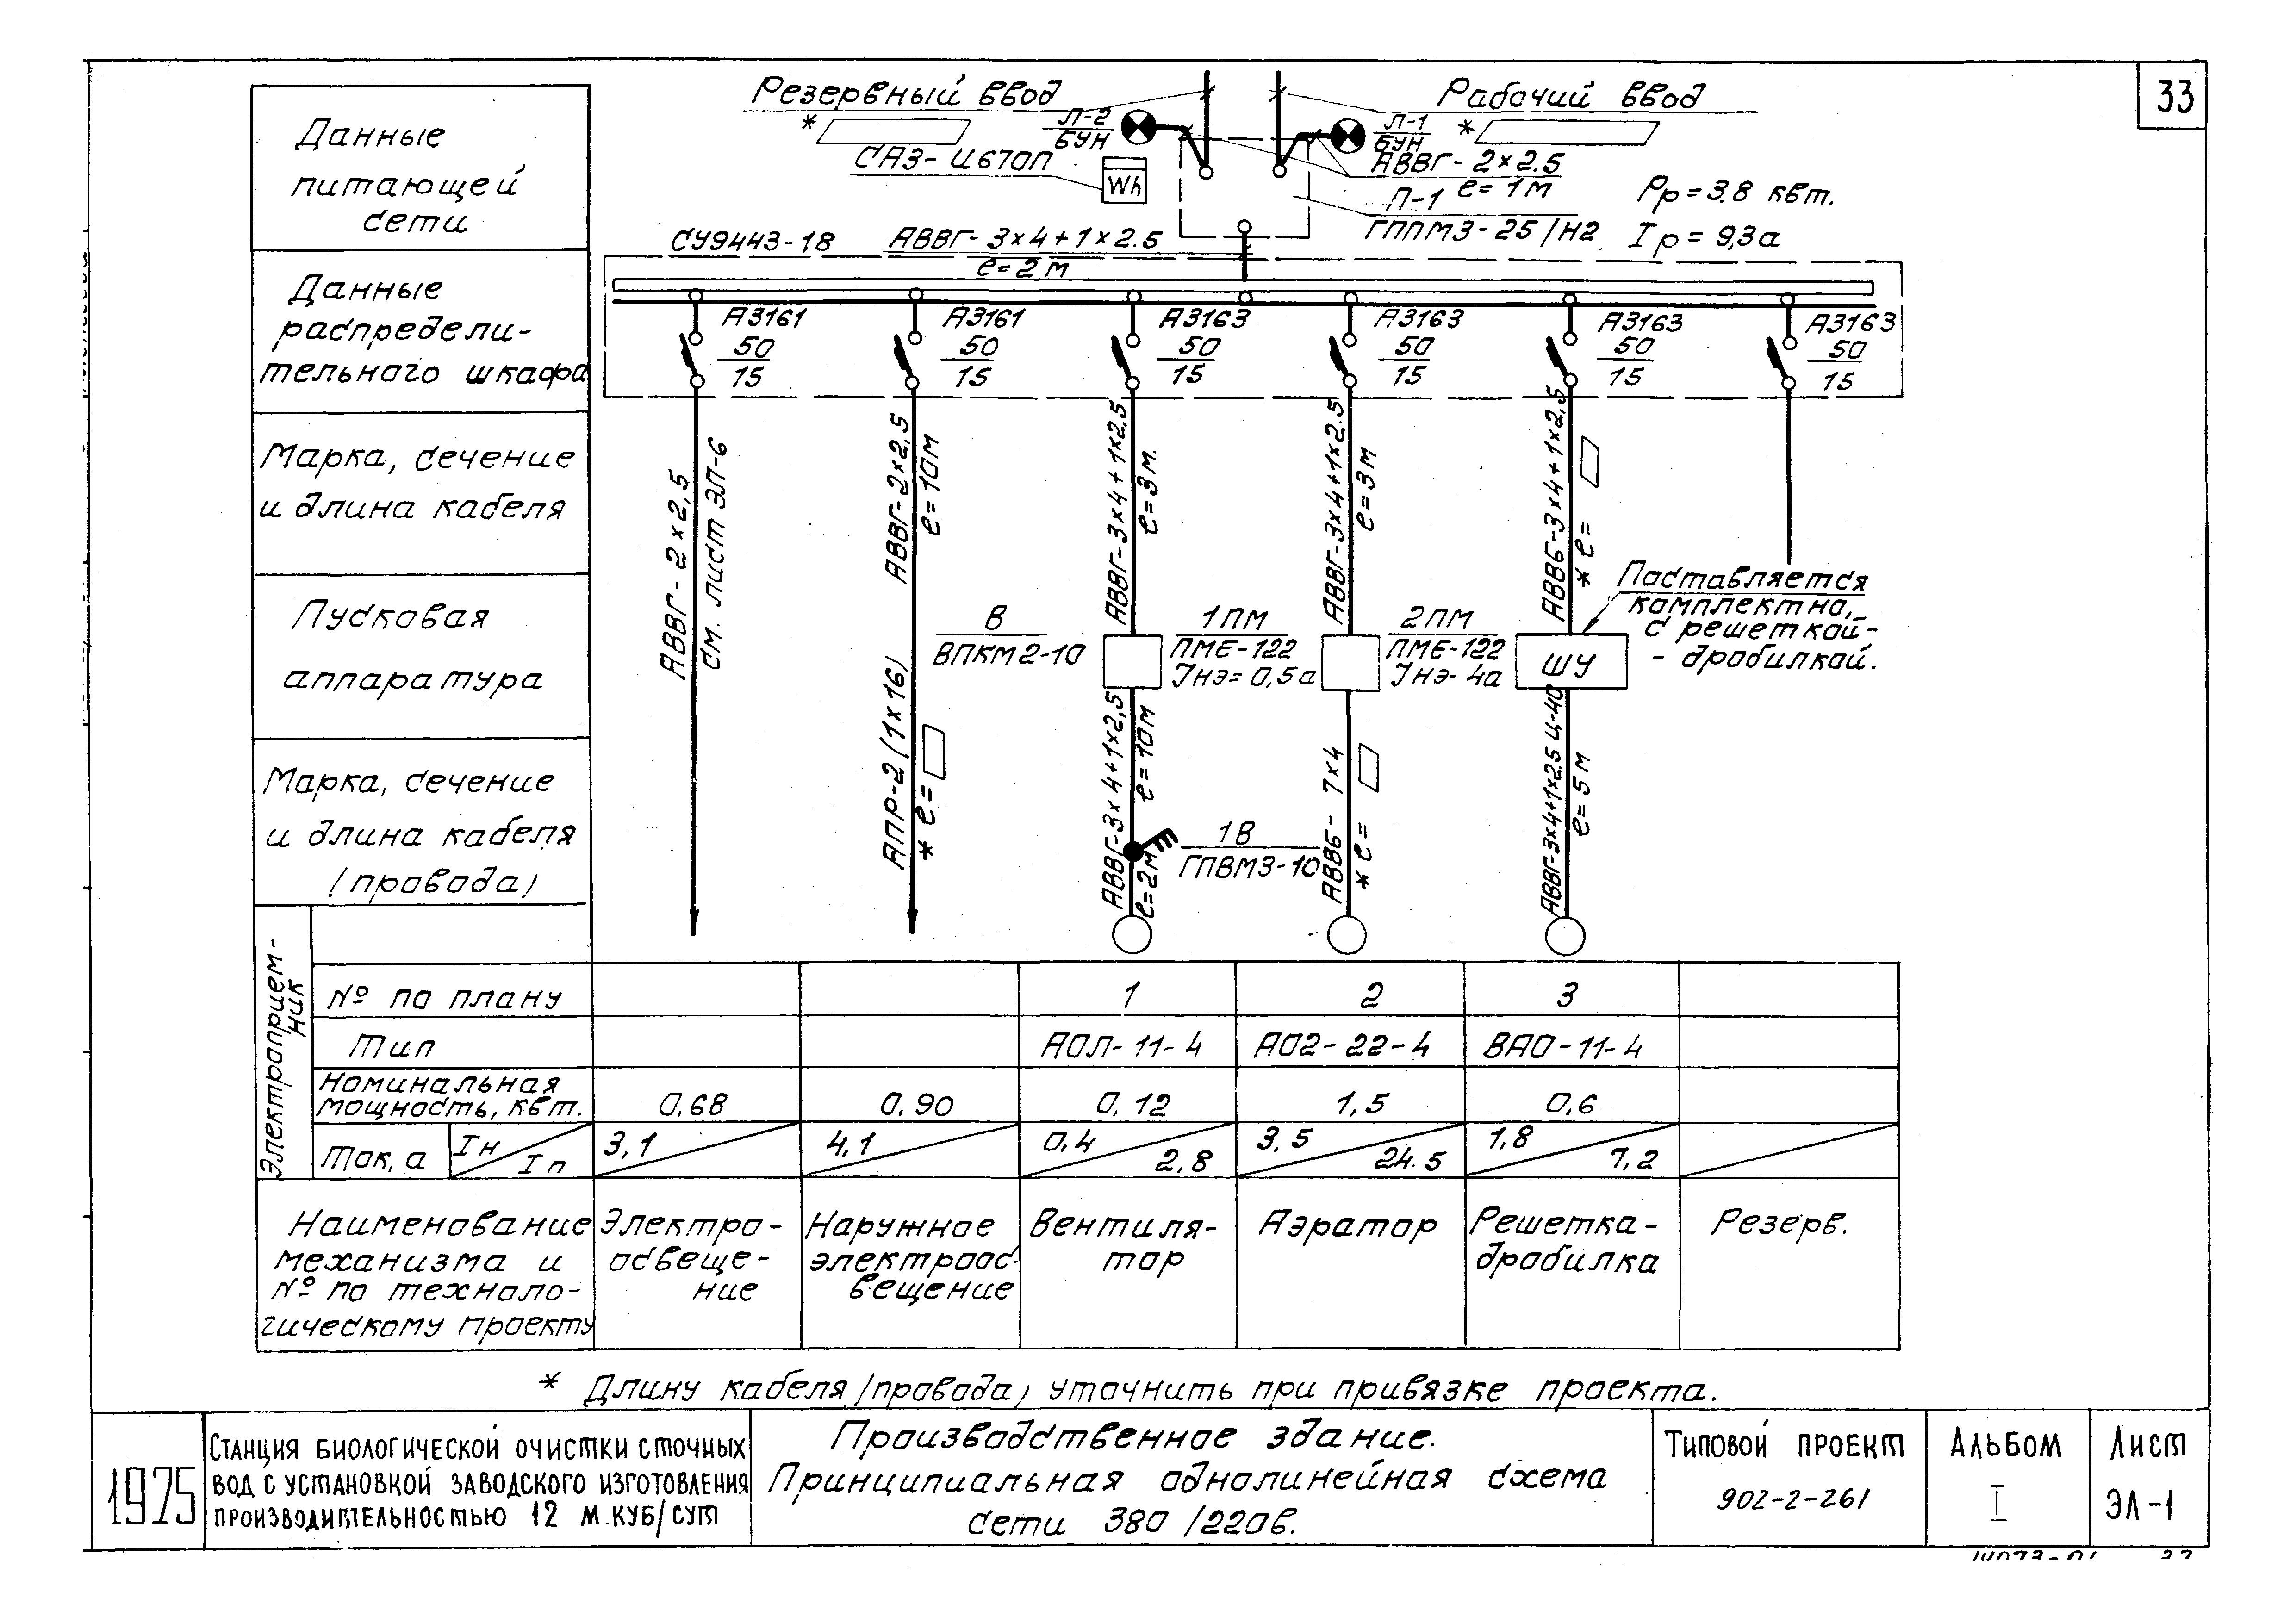 33
Резервный ввод
Рабочий ввод
*
Л-2
БУН
Л-1
БУН
*
САЗ-И670П
Wh
АВВГ-2×2.5
ℓ=1м
П-1
ГППМЗ-25/Н2
Рр=3.8 квт.
Iр=9,3а
Данные
питающей
сети
СУ9443-18
АВВГ-3×4+1×2.5
ℓ=2м
Данные
распредели-
тельного шкафа
А3161
50
15
А3161
50
15
А3163
50
15
А3163
50
15
А3163
50
15
А3163
50
15
Марка, сечение
и длина кабеля
АВВГ-2×2,5
см. лист ЭЛ-6
АВВГ-2×2,5
ℓ=10м
АВВГ-3×4+1×2,5
ℓ=3м.
АВВГ-3×4+1×2.5
ℓ=3м
АВВБ-3×4+1×2,5
* ℓ=
Поставляется
комплектно,
с решеткой-
-дробилкой.
Пусковая
аппаратура
В
ВПКМ2-10
1ПМ
ПМЕ-122
Iнэ=0,5а
2ПМ
ПМЕ-122
Iнэ-4а
ШУ
Марка, сечение
и длина кабеля
(провода)
АПР-2(1×16)
* ℓ=
АВВГ-3×4+1×2,5
ℓ=10м
ℓ=2м
1В
ГПВМЗ-10
АВВБ-7×4
* ℓ=
АВВГ-3×4+1×2.5 Ц-40
ℓ=5м
Электроприем-
ник
№ по плану
1
2
3
Тип
АОЛ-11-4
АО2-22-4
ВАО-11-4
Номинальная
мощность, квт.
0,68
0.90
0,12
1,5
0,6
Ток, а
Iн
Iп
3,1
4,1
0,4
2,8
3,5
24.5
1,8
7,2
Наименование
механизма и
№ по техноло-
гическому проекту
Электро-
освеще-
ние
Наружное
электроос-
вещение
Вентиля-
тор
Аэратор
Решетка-
дробилка
Резерв.
* Длину кабеля (провода) уточнить при привязке проекта.
1975
Станция биологической очистки сточных
вод с установкой заводского изготовления
производительностью 12 м.куб/сут
Производственное здание.
Принципиальная однолинейная схема
сети 380/220в.
Типовой проект
902-2-261
Альбом
I
Лист
ЭЛ-1